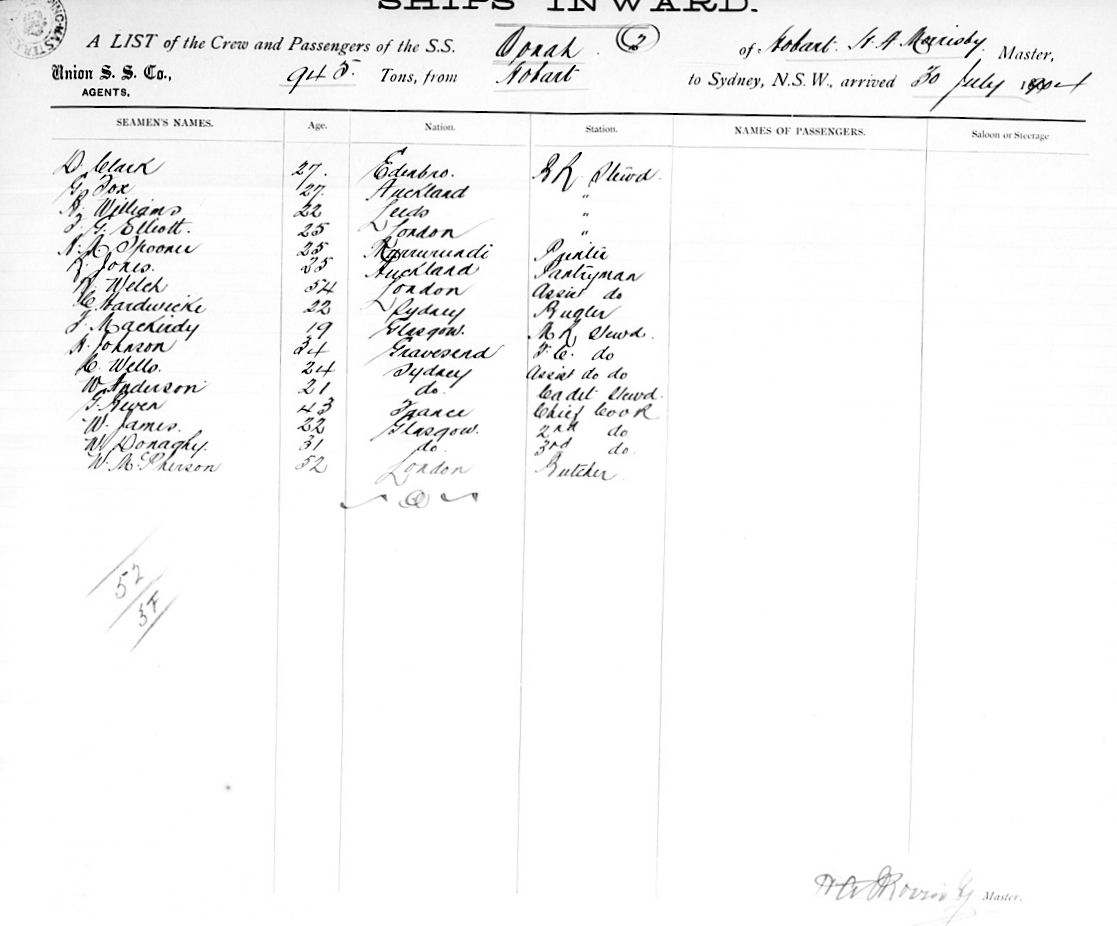 SHIPS INWARD.
A LIST of the Crew and Passengers of the S.S. Oonah (2) of Hobart. H. A Morrisby. Master,
Union S. S. Co., 945. Tons, from Hobart to Sydney, N.S.W., arrived 30 July 1904
AGENTS,
SEAMEN'S NAMES. Age. Nation. Station. NAMES OF PASSENGERS. Saloon or Steerage
D. Clark 27. Edenbro. Stewd.
G. Fox 27 Auckland "
Williams 22 Leeds "
G. Elliott. 25 London "
A. Spooner 25 Murrurundi Printer
Jones. 35 Auckland Pantryman
Welch 54 London Assist do
C. Hardwicke 22 Sydney Bugler
Mackindy 19 Glasgow. Stewd.
Johnson 34 Gravesend do
C. Wells. 24 Sydney Assist do do
W. Anderson 21 do. Cadet Stewd.
G. 43 France Chief Cook
W. James. 22 Glasgow. 2nd do
W. Donaghy. 31 do. 3rd do.
W. McPherson 52 London Butcher.
52
Master.